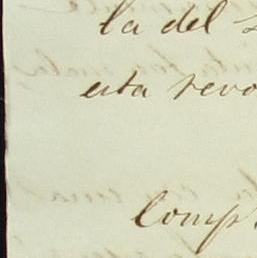 la del
esta revo
Comp.